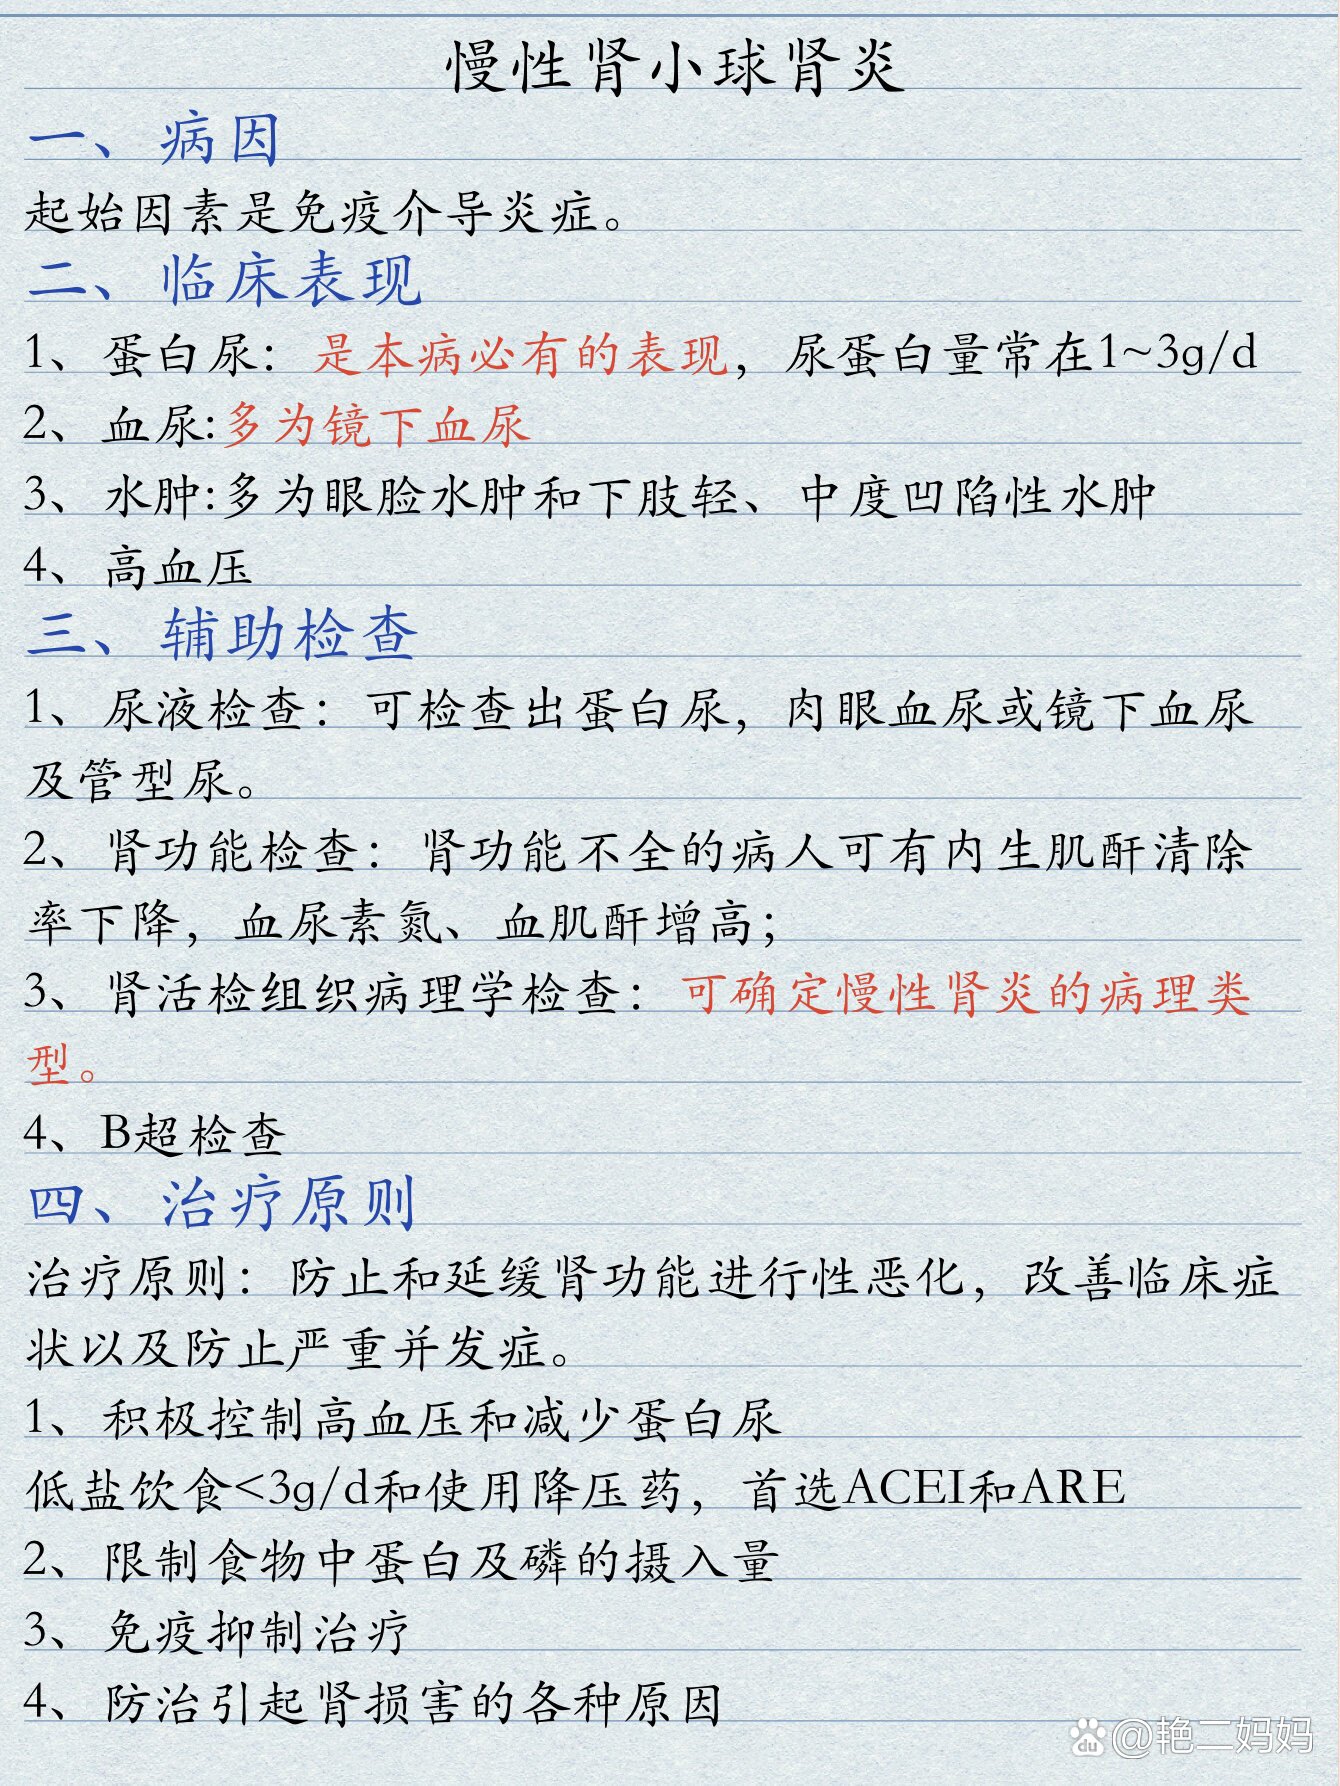 慢性肾小球肾炎
一、病因
起始因素是免疫介导炎症。
二、临床表现
1、蛋白尿：是本病必有的表现，尿蛋白量常在1~3g/d
2、血尿:多为镜下血尿
3、水肿:多为眼脸水肿和下肢轻、中度凹陷性水肿
4、高血压
三、辅助检查
1、尿液检查：可检查出蛋白尿，肉眼血尿或镜下血尿
及管型尿。
2、肾功能检查：肾功能不全的病人可有内生肌酐清除
率下降，血尿素氮、血肌酐增高；
3、肾活检组织病理学检查：可确定慢性肾炎的病理类
型。
4、B超检查
四、治疗原则
治疗原则：防止和延缓肾功能进行性恶化，改善临床症
状以及防止严重并发症。
1、积极控制高血压和减少蛋白尿
低盐饮食<3g/d和使用降压药，首选ACEI和ARE
2、限制食物中蛋白及磷的摄入量
3、免疫抑制治疗
4、防治引起肾损害的各种原因
du @艳二妈妈